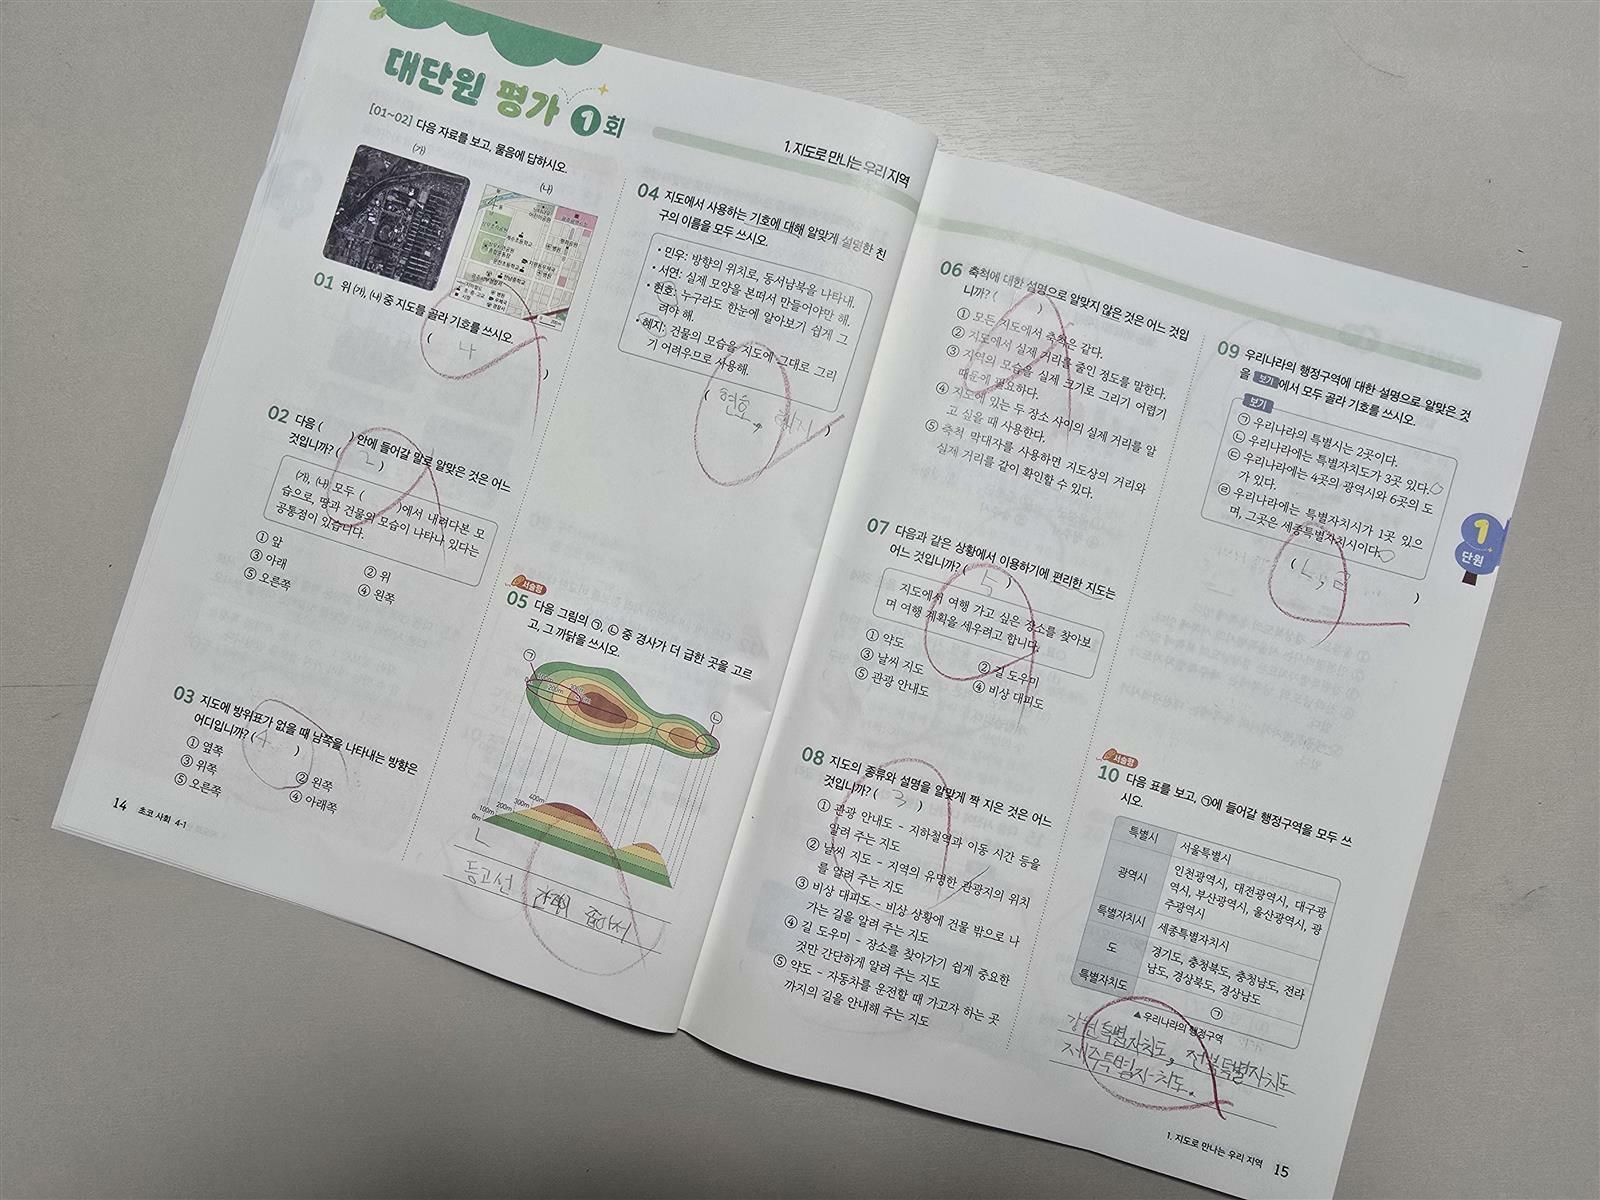 대단원 평가 1회
1. 지도로 만나는 우리 지역
[01~02] 다음 자료를 보고, 물음에 답하시오.
(가)
(나)
01 위 (가), (나) 중 지도를 골라 기호를 쓰시오.
( 나 )
02 다음 ( ) 안에 들어갈 말로 알맞은 것은 어느
것입니까? ( 2 )
(가), (나) 모두 ( )에서 내려다본 모
습으로, 땅과 건물의 모습이 나타나 있다는
공통점이 있습니다.
① 앞
② 위
③ 아래
④ 왼쪽
⑤ 오른쪽
03 지도에 방위표가 없을 때 남쪽을 나타내는 방향은
어디입니까? ( 4 )
① 옆쪽
② 왼쪽
③ 위쪽
④ 아래쪽
⑤ 오른쪽
14 초코 사회 4-1
04 지도에서 사용하는 기호에 대해 알맞게 설명한 친
구의 이름을 모두 쓰시오.
• 민우: 방향의 위치로, 동서남북을 나타내.
• 서연: 실제 모양을 본떠서 만들어야만 해.
• 현호: 누구라도 한눈에 알아보기 쉽게 그
려야 해.
• 혜지: 건물의 모습을 지도에 그대로 그리
기 어려우므로 사용해.
( 현호, 혜지 )
서술형
05 다음 그림의 ㉠, ㉡ 중 경사가 더 급한 곳을 고르
고, 그 까닭을 쓰시오.
㉠
100m
200m
300m
㉡
400m
300m
200m
100m
0m
ㄴ
등고선 간격이 좁아서
06 축척에 대한 설명으로 알맞지 않은 것은 어느 것입
니까? ( )
① 모든 지도에서 축척은 같다.
② 지도에서 실제 거리를 줄인 정도를 말한다.
③ 지역의 모습을 실제 크기로 그리기 어렵기
때문에 필요하다.
④ 지도에 있는 두 장소 사이의 실제 거리를 알
고 싶을 때 사용한다.
⑤ 축척 막대자를 사용하면 지도상의 거리와
실제 거리를 같이 확인할 수 있다.
07 다음과 같은 상황에서 이용하기에 편리한 지도는
어느 것입니까? ( 5 )
지도에서 여행 가고 싶은 장소를 찾아보
며 여행 계획을 세우려고 합니다.
① 약도
② 길 도우미
③ 날씨 지도
④ 비상 대피도
⑤ 관광 안내도
08 지도의 종류와 설명을 알맞게 짝 지은 것은 어느
것입니까? ( 3 )
① 관광 안내도 - 지하철역과 이동 시간 등을
알려 주는 지도
② 날씨 지도 - 지역의 유명한 관광지의 위치
를 알려 주는 지도
③ 비상 대피도 - 비상 상황에 건물 밖으로 나
가는 길을 알려 주는 지도
④ 길 도우미 - 장소를 찾아가기 쉽게 중요한
것만 간단하게 알려 주는 지도
⑤ 약도 - 자동차를 운전할 때 가고자 하는 곳
까지의 길을 안내해 주는 지도
09 우리나라의 행정구역에 대한 설명으로 알맞은 것
을 보기 에서 모두 골라 기호를 쓰시오.
보기
㉠ 우리나라의 특별시는 2곳이다.
㉡ 우리나라에는 특별자치도가 3곳 있다.
㉢ 우리나라에는 4곳의 광역시와 6곳의 도
가 있다.
㉣ 우리나라에는 특별자치시가 1곳 있으
며, 그곳은 세종특별자치시이다.
( ㄴ, ㄹ )
1
단원
서술형
10 다음 표를 보고, ㉠에 들어갈 행정구역을 모두 쓰
시오.
특별시 서울특별시
광역시 인천광역시, 대전광역시, 대구광
역시, 부산광역시, 울산광역시, 광
주광역시
특별자치시 세종특별자치시
도 경기도, 충청북도, 충청남도, 전라
남도, 경상북도, 경상남도
특별자치도 ㉠
▲ 우리나라의 행정구역
강원특별자치도, 전북특별자치도
제주특별자치도.
1. 지도로 만나는 우리 지역 15